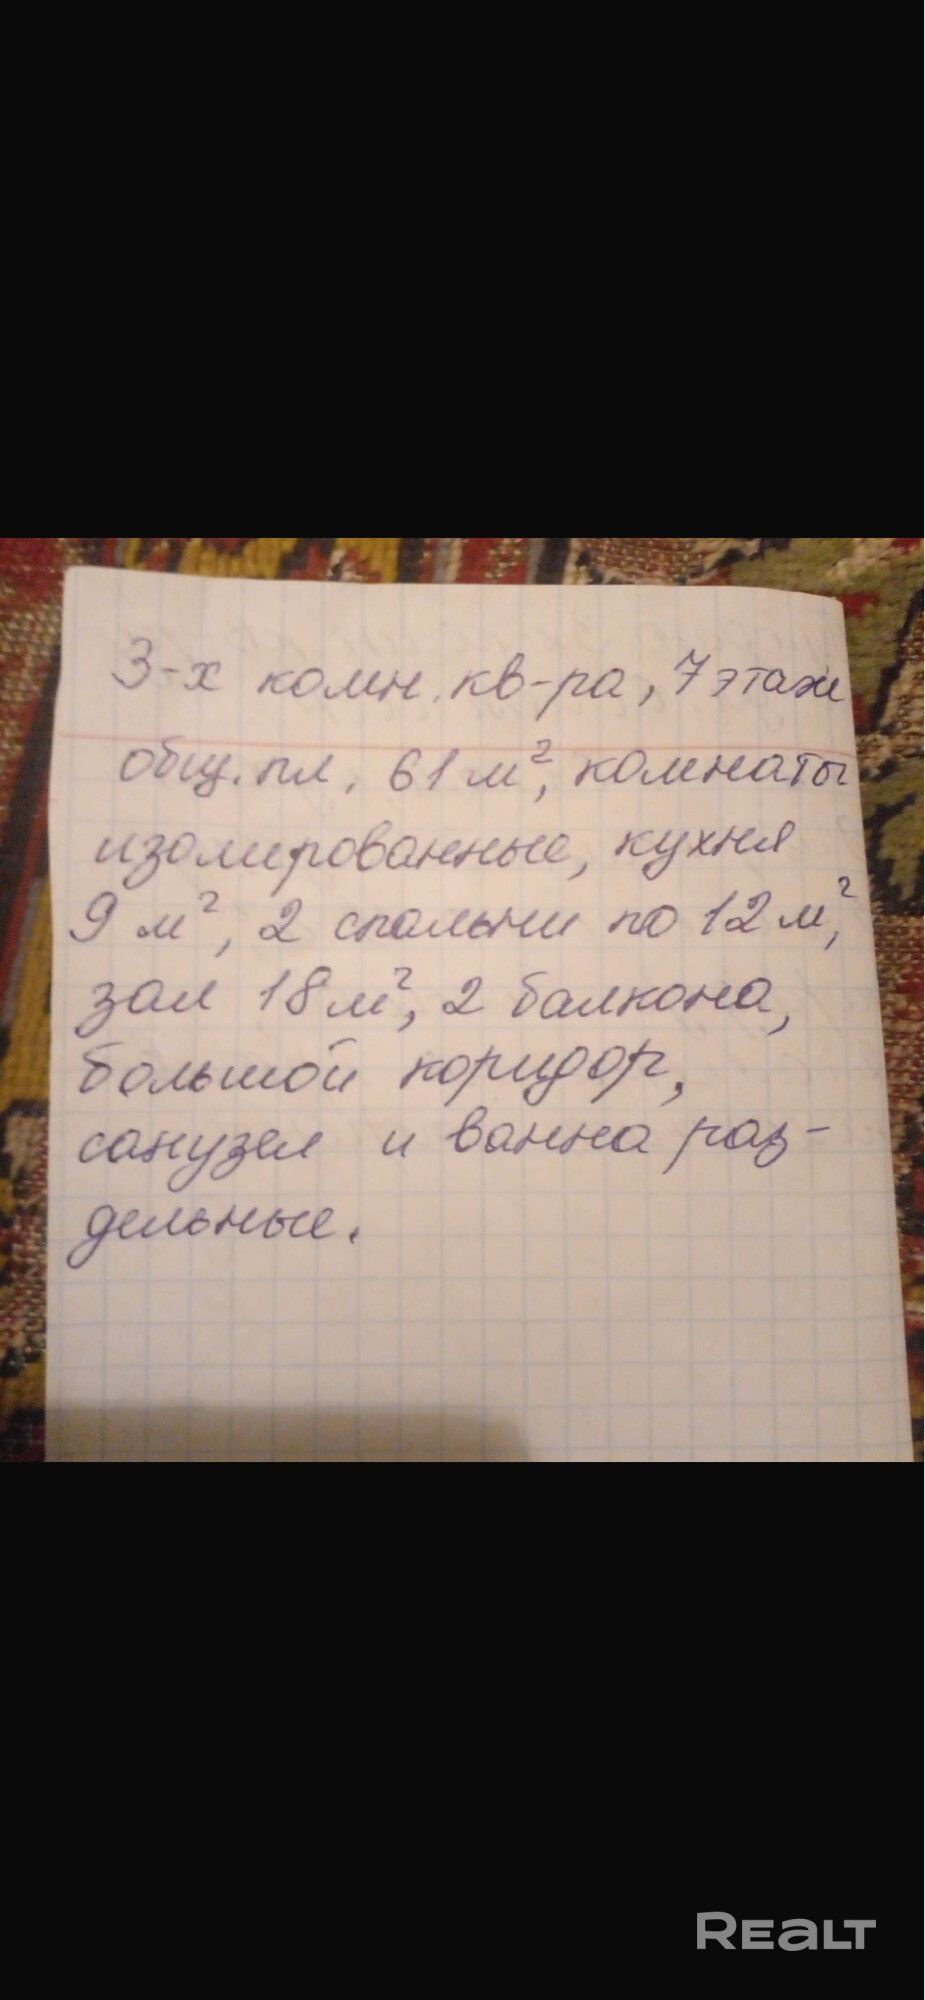 3-х комн. кв-ра, 7 этаж
общ. пл. 61 м², комнаты
изолированные, кухня
9 м², 2 спальни по 12 м²,
зал 18 м², 2 балкона,
большой коридор,
санузел и ванна раз-
дельные.
REALT